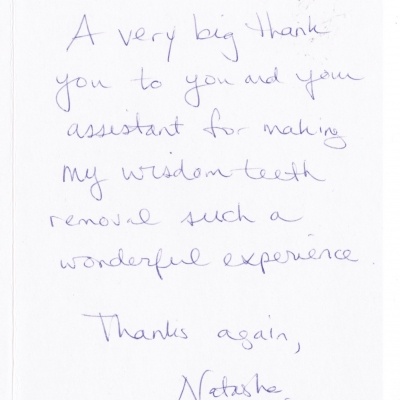 A very big thank
you to you and your
assistant for making
my wisdom teeth
removal such a
wonderful experience
Thanks again,
Natasha.